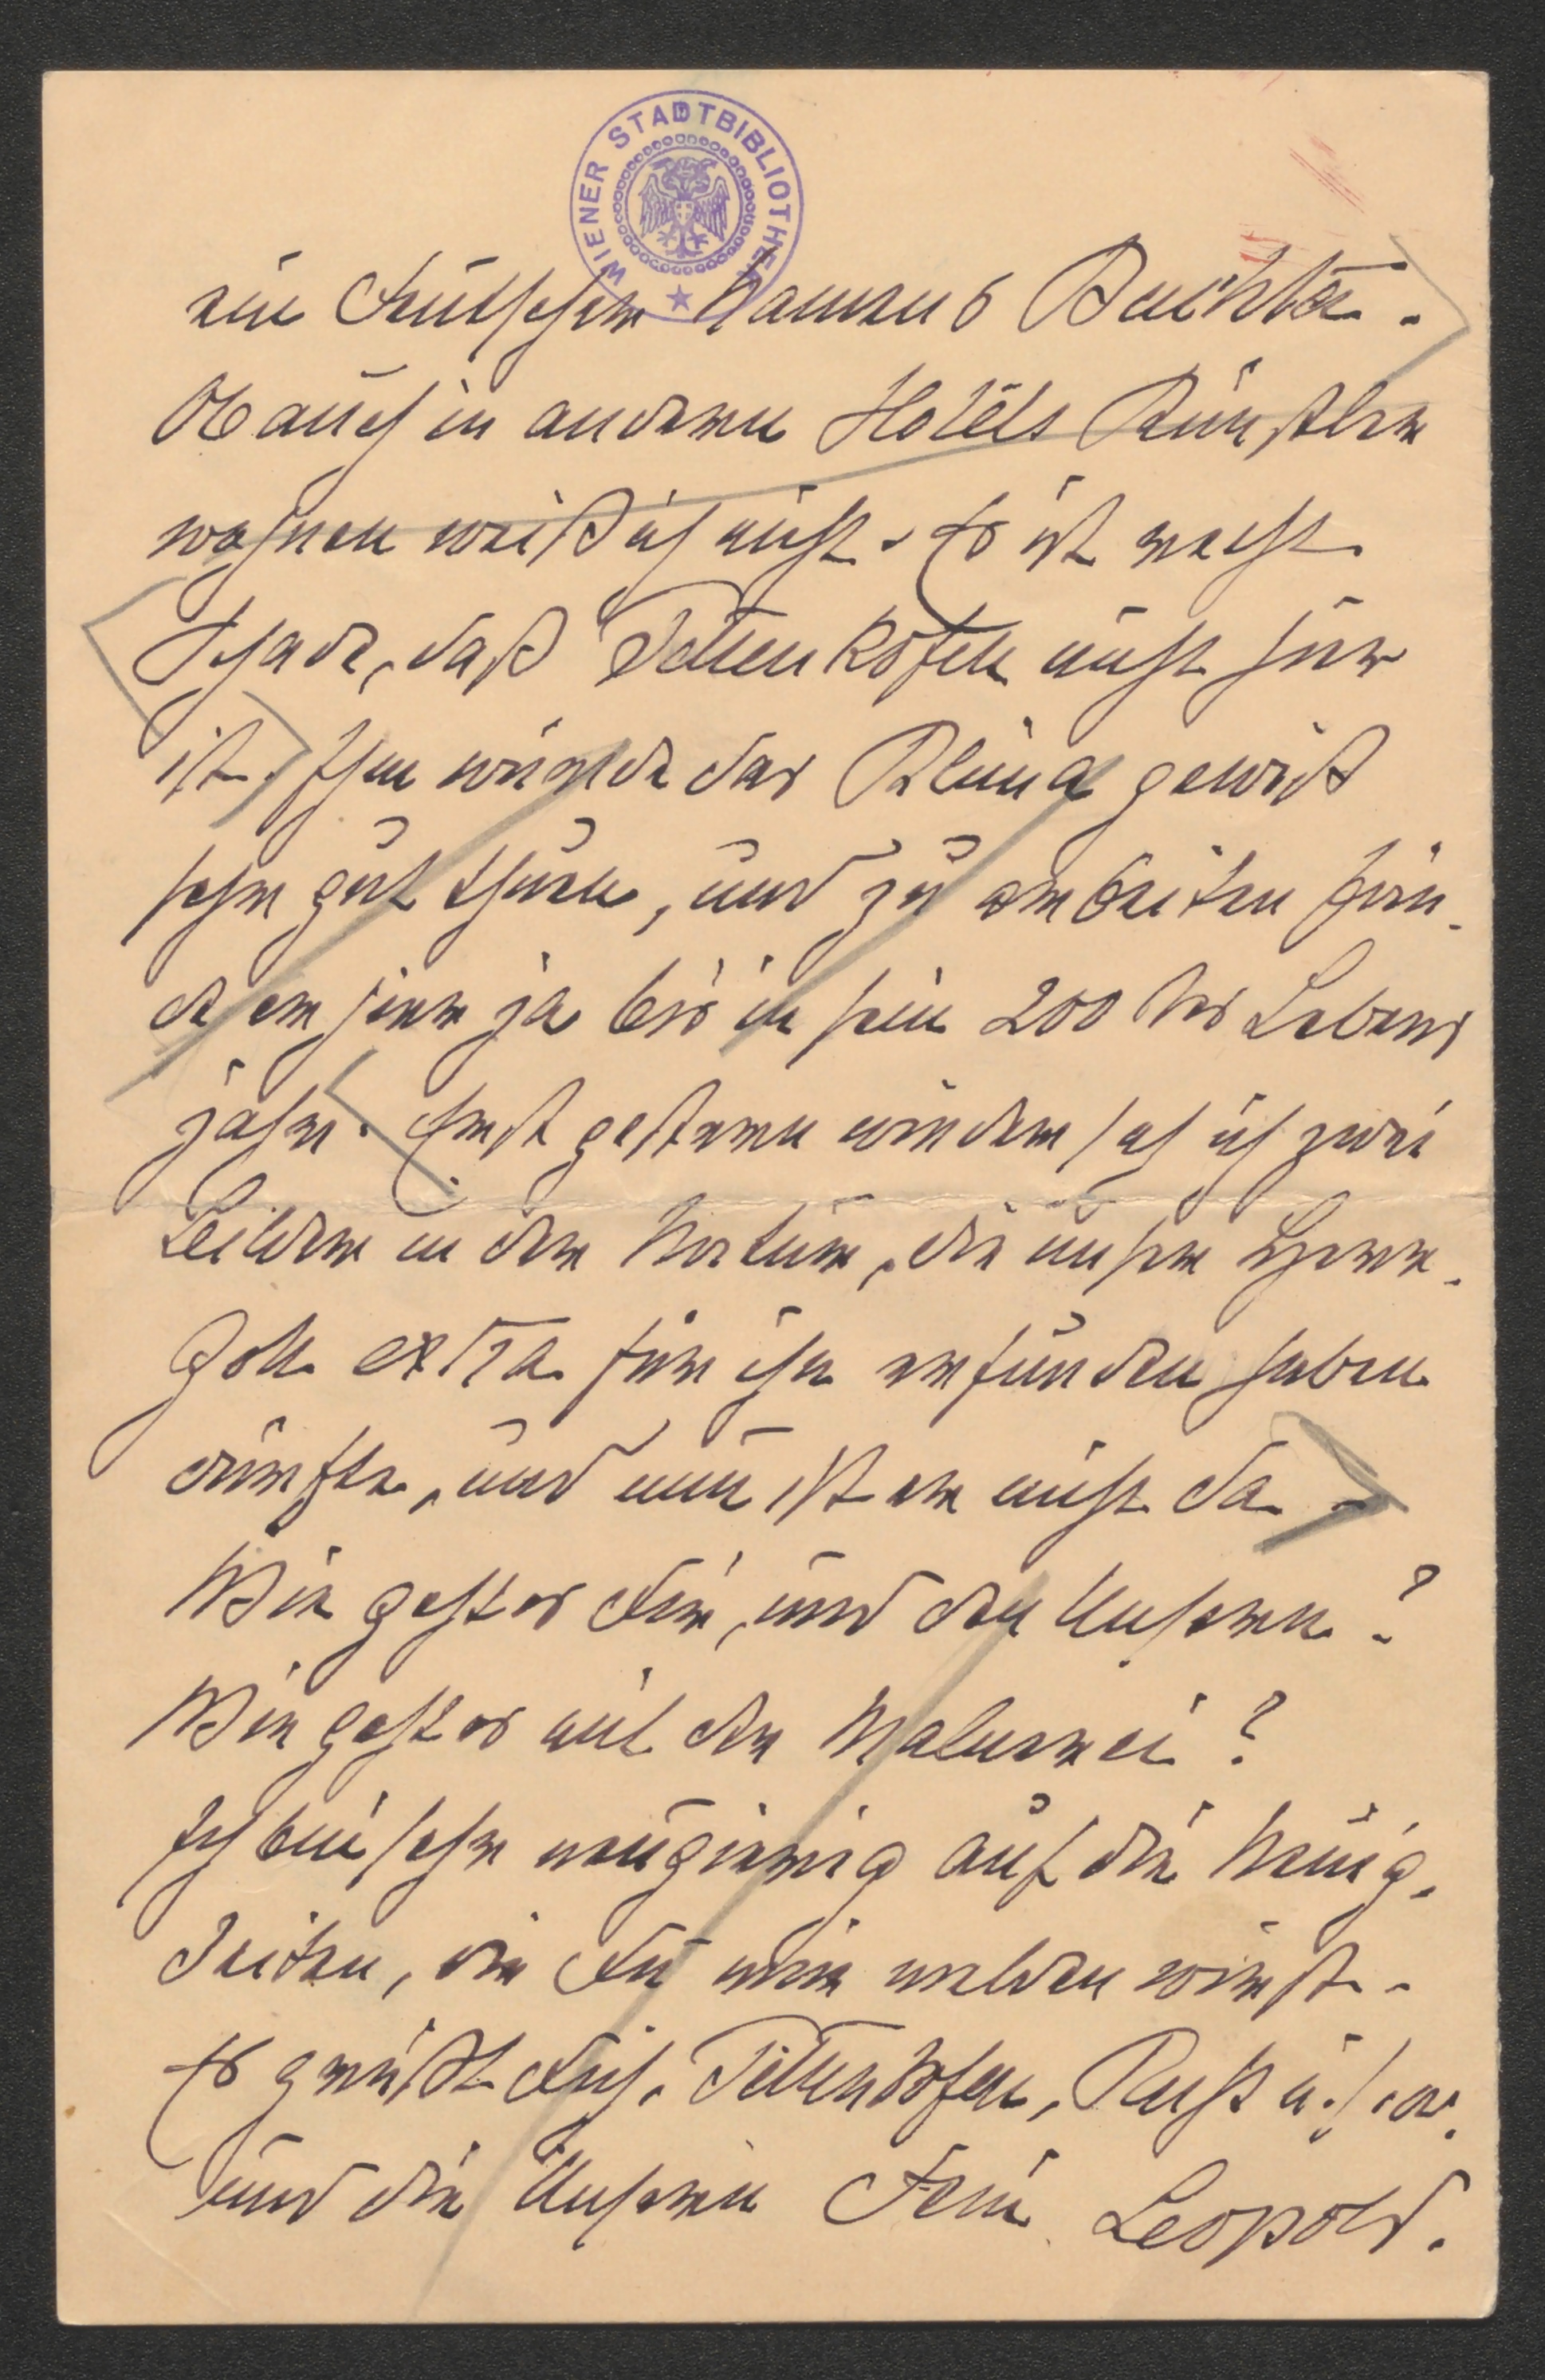 WIENER STADTBIBLIOTHEK
ein Deutscher Namens Buchta.
Ob auch in anderen Hotels Künstler
wohnen weiß ich nicht. Es ist recht
schade, daß Pettenkofen nicht hier
ist. Ihm würde das Klima gewiß
sehr gut thuen, und zu arbeiten fän-
de er hier ja bis in sein 200tes Lebens
jahr. Erst gestern wieder sah ich zwei
Bilder in der Natur, die unser Herr-
gott extra für ihn erfunden haben
dürfte, und nun ist er nicht da.
Wie geht es Dir, und den Unseren?
Wie geht es mit der Malerei?
Ich bin sehr neugierig auf die Neuig-
keiten, die Du mir melden wirst.
Es grüßt Dich, Pettenkofen, Russ u. s. w.
und die Unseren Dein Leopold.